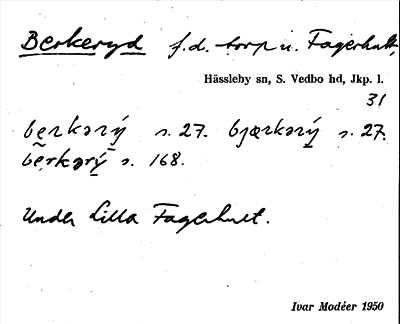 Berkeryd f.d. torp u. Fagerhult,
Hässleby sn, S. Vedbo hd, Jkp. l.
31
bęrkərý s. 27. bjærkərý s. 27.
bęrkərý s. 168.
Under Lilla Fagerhult.
Ivar Modéer 1950